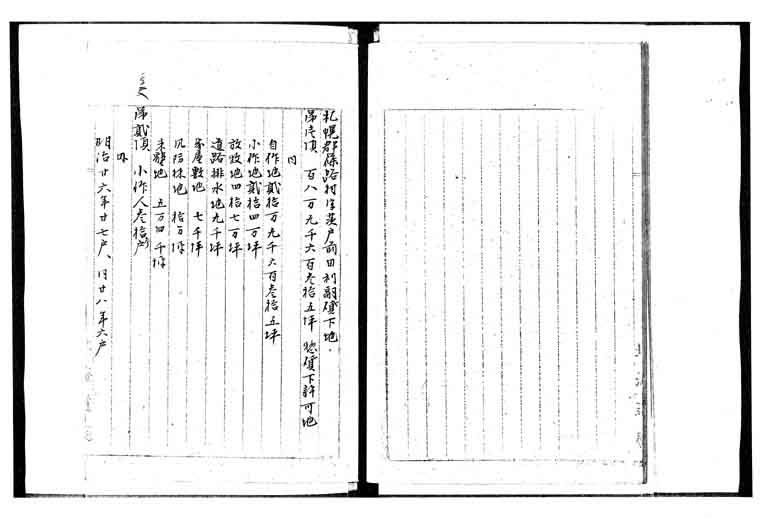 札幌郡篠路村字茨戸前田利嗣貸下地.
第壱項 百八万九千六百叁拾五坪 惣貸下許可地
内
自作地貳拾万九千六百叁拾五坪
小作地貳拾四万坪
放牧地四拾七万坪
道路排水地九千坪
家屋敷地 七千坪
風防林地 拾万坪
未墾地 五万四千坪
第貳項 小作人叁拾戸
内
明治廿六年廿七戸、同廿八年六戸